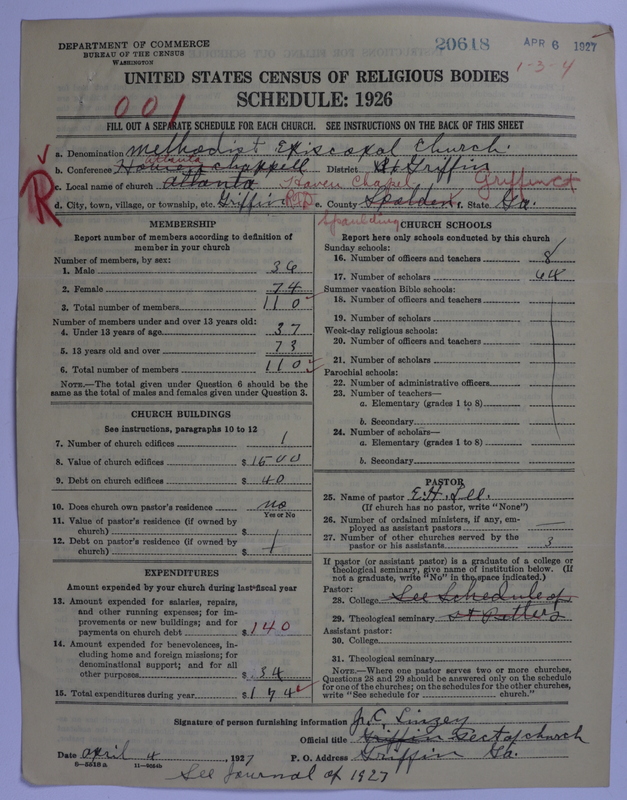 DEPARTMENT OF COMMERCE
BUREAU OF THE CENSUS
WASHINGTON
20618
APR 6 1927
1-3-4
UNITED STATES CENSUS OF RELIGIOUS BODIES
SCHEDULE: 1926
001
FILL OUT A SEPARATE SCHEDULE FOR EACH CHURCH. SEE INSTRUCTIONS ON THE BACK OF THIS SHEET
R
a. Denomination Methodist Episcopal Church.
b. Conference Atlanta chappell District Griffin
c. Local name of church Atlanta Chapel Griffin Ct
d. City, town, village, or township, etc. Griffin RFD e. County Spalden f. State Ga.
Spaulding
MEMBERSHIP
Report number of members according to definition of
member in your church
Number of members, by sex:
1. Male 36
2. Female 74
3. Total number of members 110
Number of members under and over 13 years old:
4. Under 13 years of age 37
5. 13 years old and over 73
6. Total number of members 110
NOTE.—The total given under Question 6 should be the
same as the total of males and females given under Question 3.
CHURCH BUILDINGS
See instructions, paragraphs 10 to 12
7. Number of church edifices 1
8. Value of church edifices $1500
9. Debt on church edifices $40
10. Does church own pastor's residence no
Yes or No
11. Value of pastor's residence (if owned by
church) $
12. Debt on pastor's residence (if owned by
church) $
EXPENDITURES
Amount expended by your church during last fiscal year
13. Amount expended for salaries, repairs,
and other running expenses; for im-
provements or new buildings; and for
payments on church debt $140
14. Amount expended for benevolences, in-
cluding home and foreign missions; for
denominational support; and for all
other purposes $34
15. Total expenditures during year $174
CHURCH SCHOOLS
Report here only schools conducted by this church
Sunday schools:
16. Number of officers and teachers 8
17. Number of scholars 64
Summer vacation Bible schools:
18. Number of officers and teachers
19. Number of scholars
Week-day religious schools:
20. Number of officers and teachers
21. Number of scholars
Parochial schools:
22. Number of administrative officers
23. Number of teachers—
a. Elementary (grades 1 to 8)
b. Secondary
24. Number of scholars—
a. Elementary (grades 1 to 8)
b. Secondary
PASTOR
25. Name of pastor E.H. Lee.
(If church has no pastor, write "None")
26. Number of ordained ministers, if any, em-
ployed as assistant pastors —
27. Number of other churches served by the
pastor or his assistants 3
If pastor (or assistant pastor) is a graduate of a college or
theological seminary, give name of institution below. (If
not a graduate, write "No" in the space indicated.)
Pastor:
28. College See Schedule of
29. Theological seminary
Assistant pastor:
30. College
31. Theological seminary
NOTE.—Where one pastor serves two or more churches,
Questions 28 and 29 should be answered only on the schedule
for one of the churches; on the schedules for the other churches,
write "See schedule for church."
Signature of person furnishing information Linzey
Official title Griffin Sect of church
Date April 4, 1927 P. O. Address Griffin Ga.
See Journal of 1927